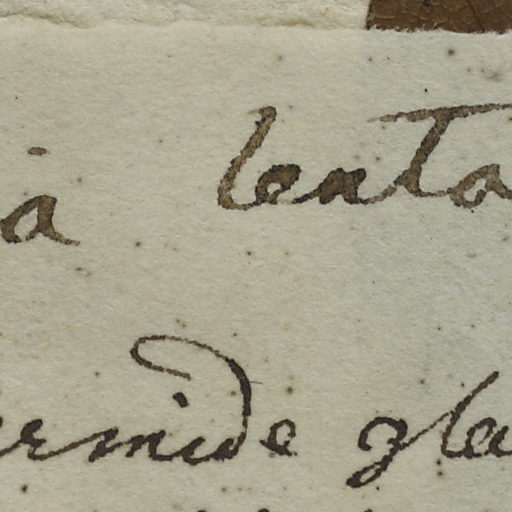 à lenta
ermide gla